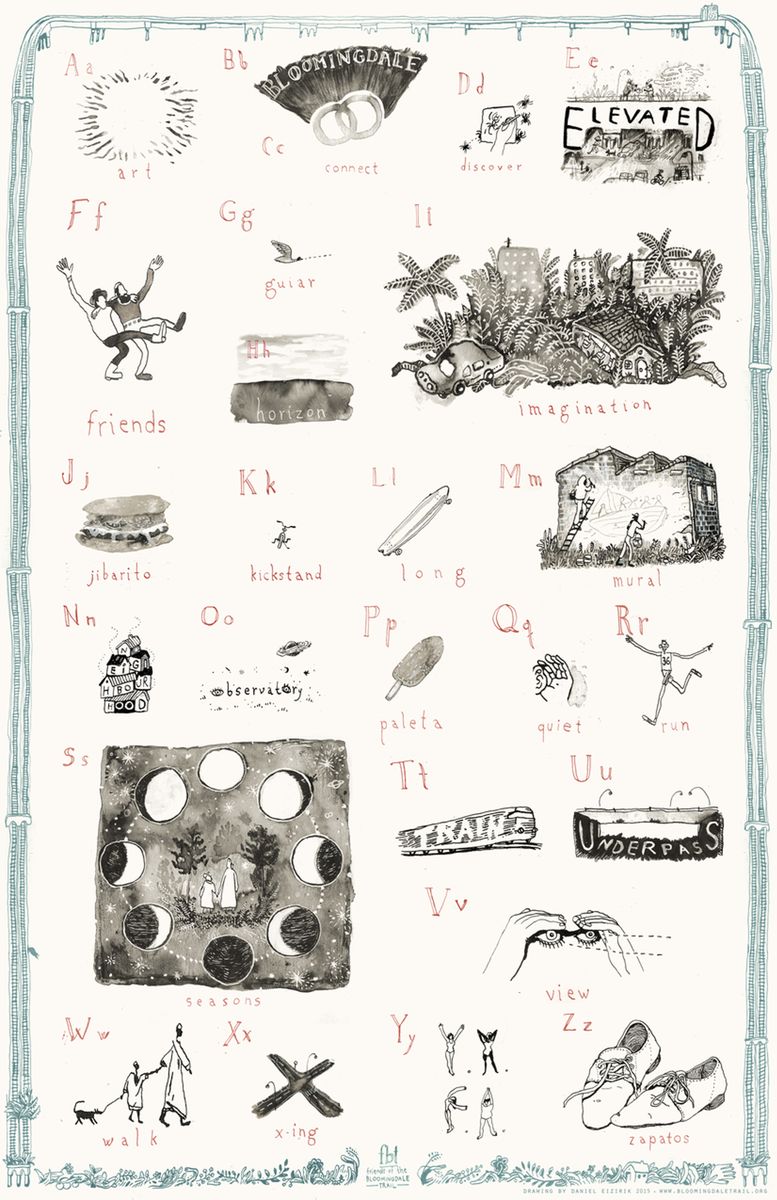 Aa
art
Bb
BLOOMINGDALE
Cc
connect
Dd
discover
Ee
ELEVATED
Ff
friends
Gg
guiar
Hh
horizon
Ii
imagination
Jj
jibarito
Kk
kickstand
Ll
long
Mm
mural
Nn
NEIGHBOURHOOD
Oo
observatory
Pp
paleta
Qq
quiet
Rr
36
run
Ss
seasons
Tt
TRAIN
Uu
UNDERPASS
Vv
view
Ww
walk
Xx
x-ing
Yy
Zz
zapatos
fbt
friends of the
BLOOMINGDALE
TRAIL
DRAWING BY DANIEL EIZIRIK 2015 - WWW.BLOOMINGDALETRAIL.ORG